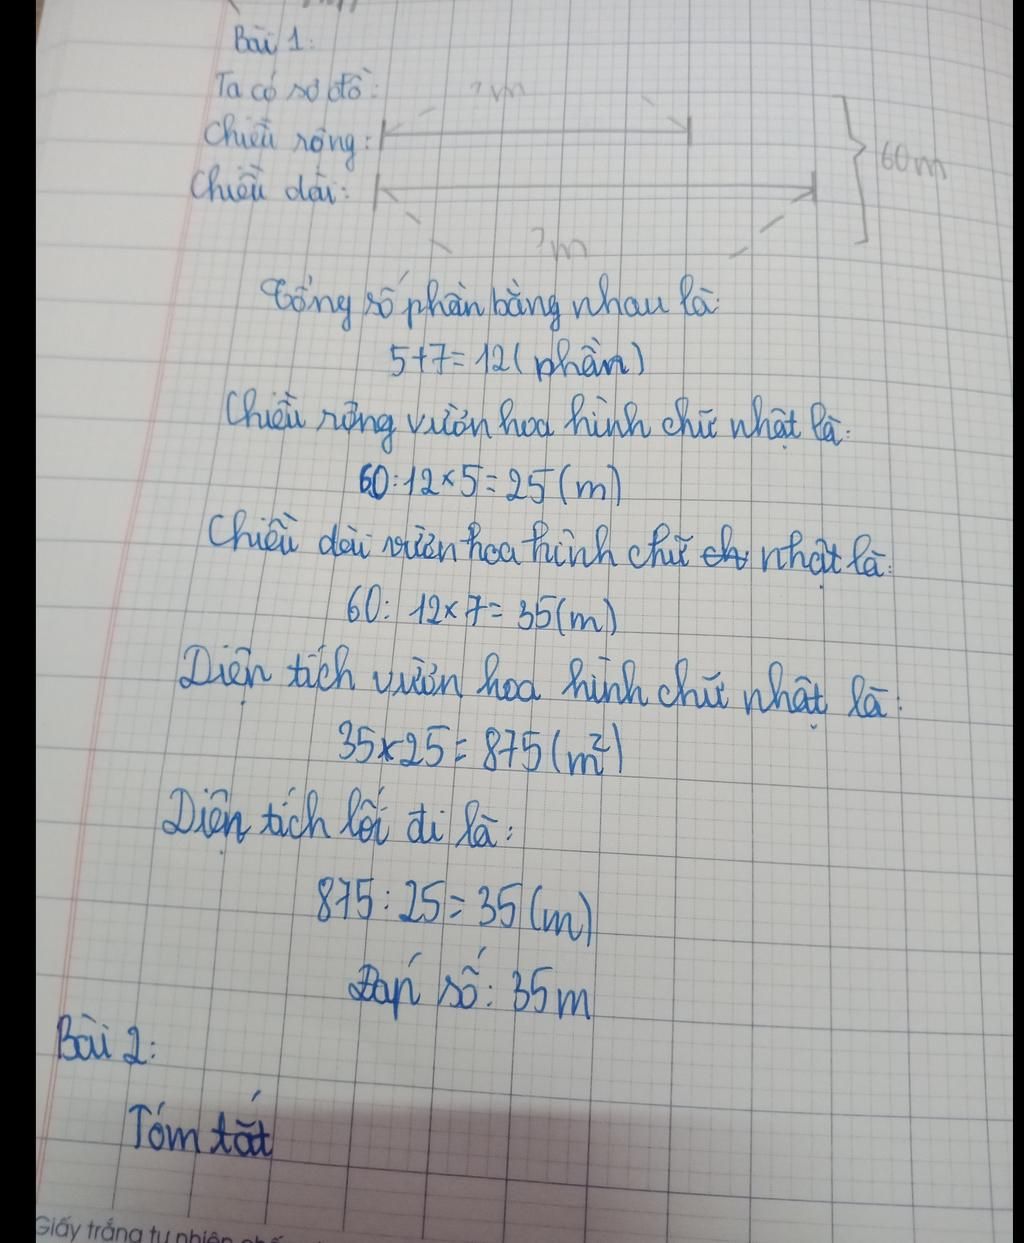 Bài 1:
Ta có sơ đồ:
?m
Chiều rộng:
60m
Chiều dài:
?m
Tổng số phần bằng nhau là:
5+7=12 (phần)
Chiều rộng vườn hoa hình chữ nhật là:
60:12×5=25(m)
Chiều dài vườn hoa hình chữ nhật là:
60:12×7=35(m)
Diện tích vườn hoa hình chữ nhật là:
35×25=875(m²)
Diện tích lối đi là:
875:25=35(m)
Đáp số: 35m
Bài 2:
Tóm tắt
Giấy trắng tự nhiên